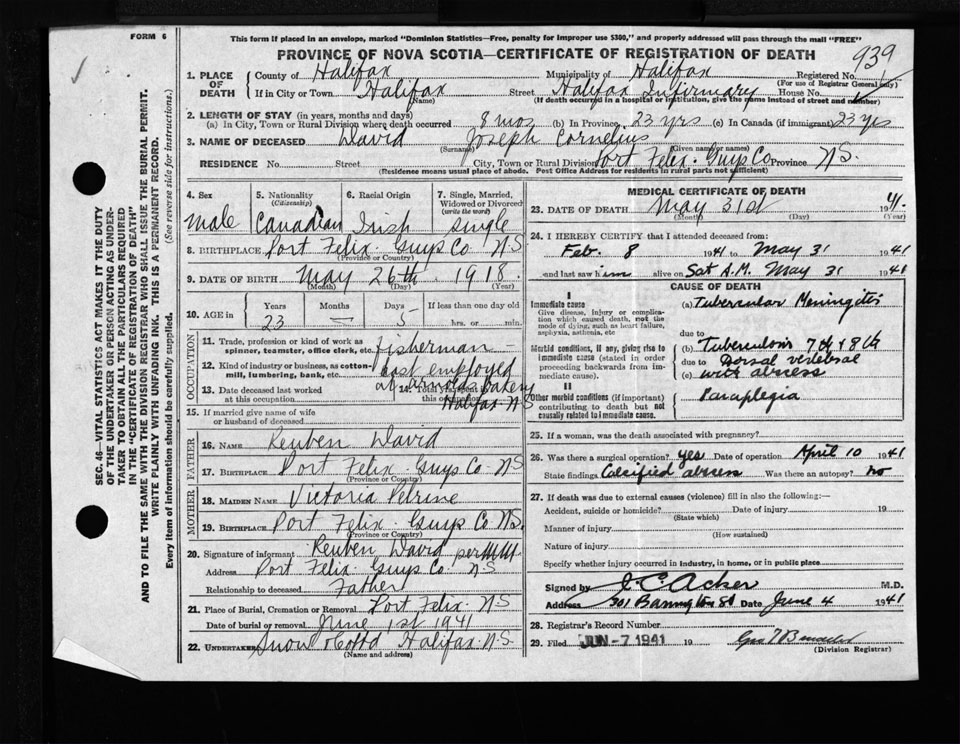 FORM 6
This form if placed in an envelope, marked "Dominion Statistics—Free, penalty for improper use $300," and properly addressed will pass through the mail "FREE"
PROVINCE OF NOVA SCOTIA—CERTIFICATE OF REGISTRATION OF DEATH
939
SEC. 46—VITAL STATISTICS ACT MAKES IT THE DUTY OF THE UNDERTAKER OR PERSON ACTING AS UNDERTAKER TO OBTAIN ALL THE PARTICULARS REQUIRED IN THE "CERTIFICATE OF REGISTRATION OF DEATH" AND TO FILE THE SAME WITH THE DIVISION REGISTRAR WHO SHALL ISSUE THE BURIAL PERMIT.
WRITE PLAINLY WITH UNFADING INK. THIS IS A PERMANENT RECORD.
Every item of information should be carefully supplied. (See reverse side for instructions.)
1. PLACE OF DEATH County of Halifax Municipality of Halifax Registered No.
(For use of Registrar General only)
If in City or Town Halifax Street Halifax Infirmary House No.
(Name) (If death occurred in a hospital or institution, give the name instead of street and number)
2. LENGTH OF STAY (in years, months and days)
(a) In City, Town or Rural Division where death occurred 8 mos (b) In Province 23 yrs (c) In Canada (if immigrant) 23 yrs
3. NAME OF DECEASED David Joseph Cornelius
(Surname) (Given name or names)
RESIDENCE No. Street City, Town or Rural Division Port Felix. Guys Co Province N.S.
(Residence means usual place of abode. Post Office Address for residents in rural parts not sufficient)
4. Sex Male
5. Nationality (Citizenship) Canadian
6. Racial Origin Irish
7. Single, Married, Widowed or Divorced (write the word) Single
8. BIRTHPLACE Port Felix. Guys Co NS
(Province or Country)
9. DATE OF BIRTH May 26th. 1918.
(Month) (Day) (Year)
10. AGE in Years 23 Months — Days 5 If less than one day old hrs. or min.
11. Trade, profession or kind of work as spinner, teamster, office clerk, etc. Fisherman –
12. Kind of industry or business, as cotton-mill, lumbering, bank, etc. Last employed
13. Date deceased last worked at this occupation at Arnolds Bakery
14. Total years spent in this occupation Halifax NS
15. If married give name of wife or husband of deceased
FATHER
16. NAME Reuben David
17. BIRTHPLACE Port Felix. Guys Co. NS
(Province or Country)
MOTHER
18. MAIDEN NAME Victoria Petrine
19. BIRTHPLACE Port Felix. Guys Co NS.
(Province or Country)
20. Signature of informant Reuben David per
Address Port Felix. Guys Co N-S
Relationship to deceased Father
21. Place of Burial, Cremation or Removal Port Felix. NS
Date of burial or removal June 1st 1941
22. UNDERTAKER Snow & Co Ltd Halifax. N.S.
(Name and address)
MEDICAL CERTIFICATE OF DEATH
23. DATE OF DEATH May 31st 1941.
(Month) (Day) (Year)
24. I HEREBY CERTIFY that I attended deceased from:
Feb. 8 1941 to May 31 1941
and last saw him alive on Sat A.M. May 31 1941
CAUSE OF DEATH
I
Immediate cause
Give disease, injury or complication which caused death, not the mode of dying, such as heart failure, asphyxia, asthenia, etc
(a) Tubercular Meningitis
due to
Morbid conditions, if any, giving rise to immediate cause (stated in order proceeding backwards from immediate cause).
(b) Tuberculosis 7th & 8th
due to Dorsal vertebrae
(c) with abscess
II
Other morbid conditions (if important) contributing to death but not causally related to immediate cause.
Paraplegia
25. If a woman, was the death associated with pregnancy?
26. Was there a surgical operation? yes Date of operation April 10 1941
State findings Calcified abscess Was there an autopsy? No
27. If death was due to external causes (violence) fill in also the following:—
Accident, suicide or homicide? Date of injury 19
(State which)
Manner of injury
(How sustained)
Nature of injury
Specify whether injury occurred in industry, in home, or in public place
Signed by J.C. Acker M.D.
Address 301 Barrington St Date June 4 1941
28. Registrar's Record Number
29. Filed JUN -7 1941 19
(Division Registrar)